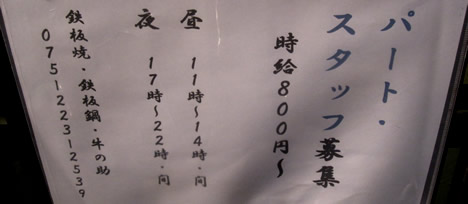 パート・
スタッフ募集
時給800円〜
昼 11時〜14時・間
夜 17時〜22時・間
鉄板焼・鉄板鍋・牛の助
075122312539